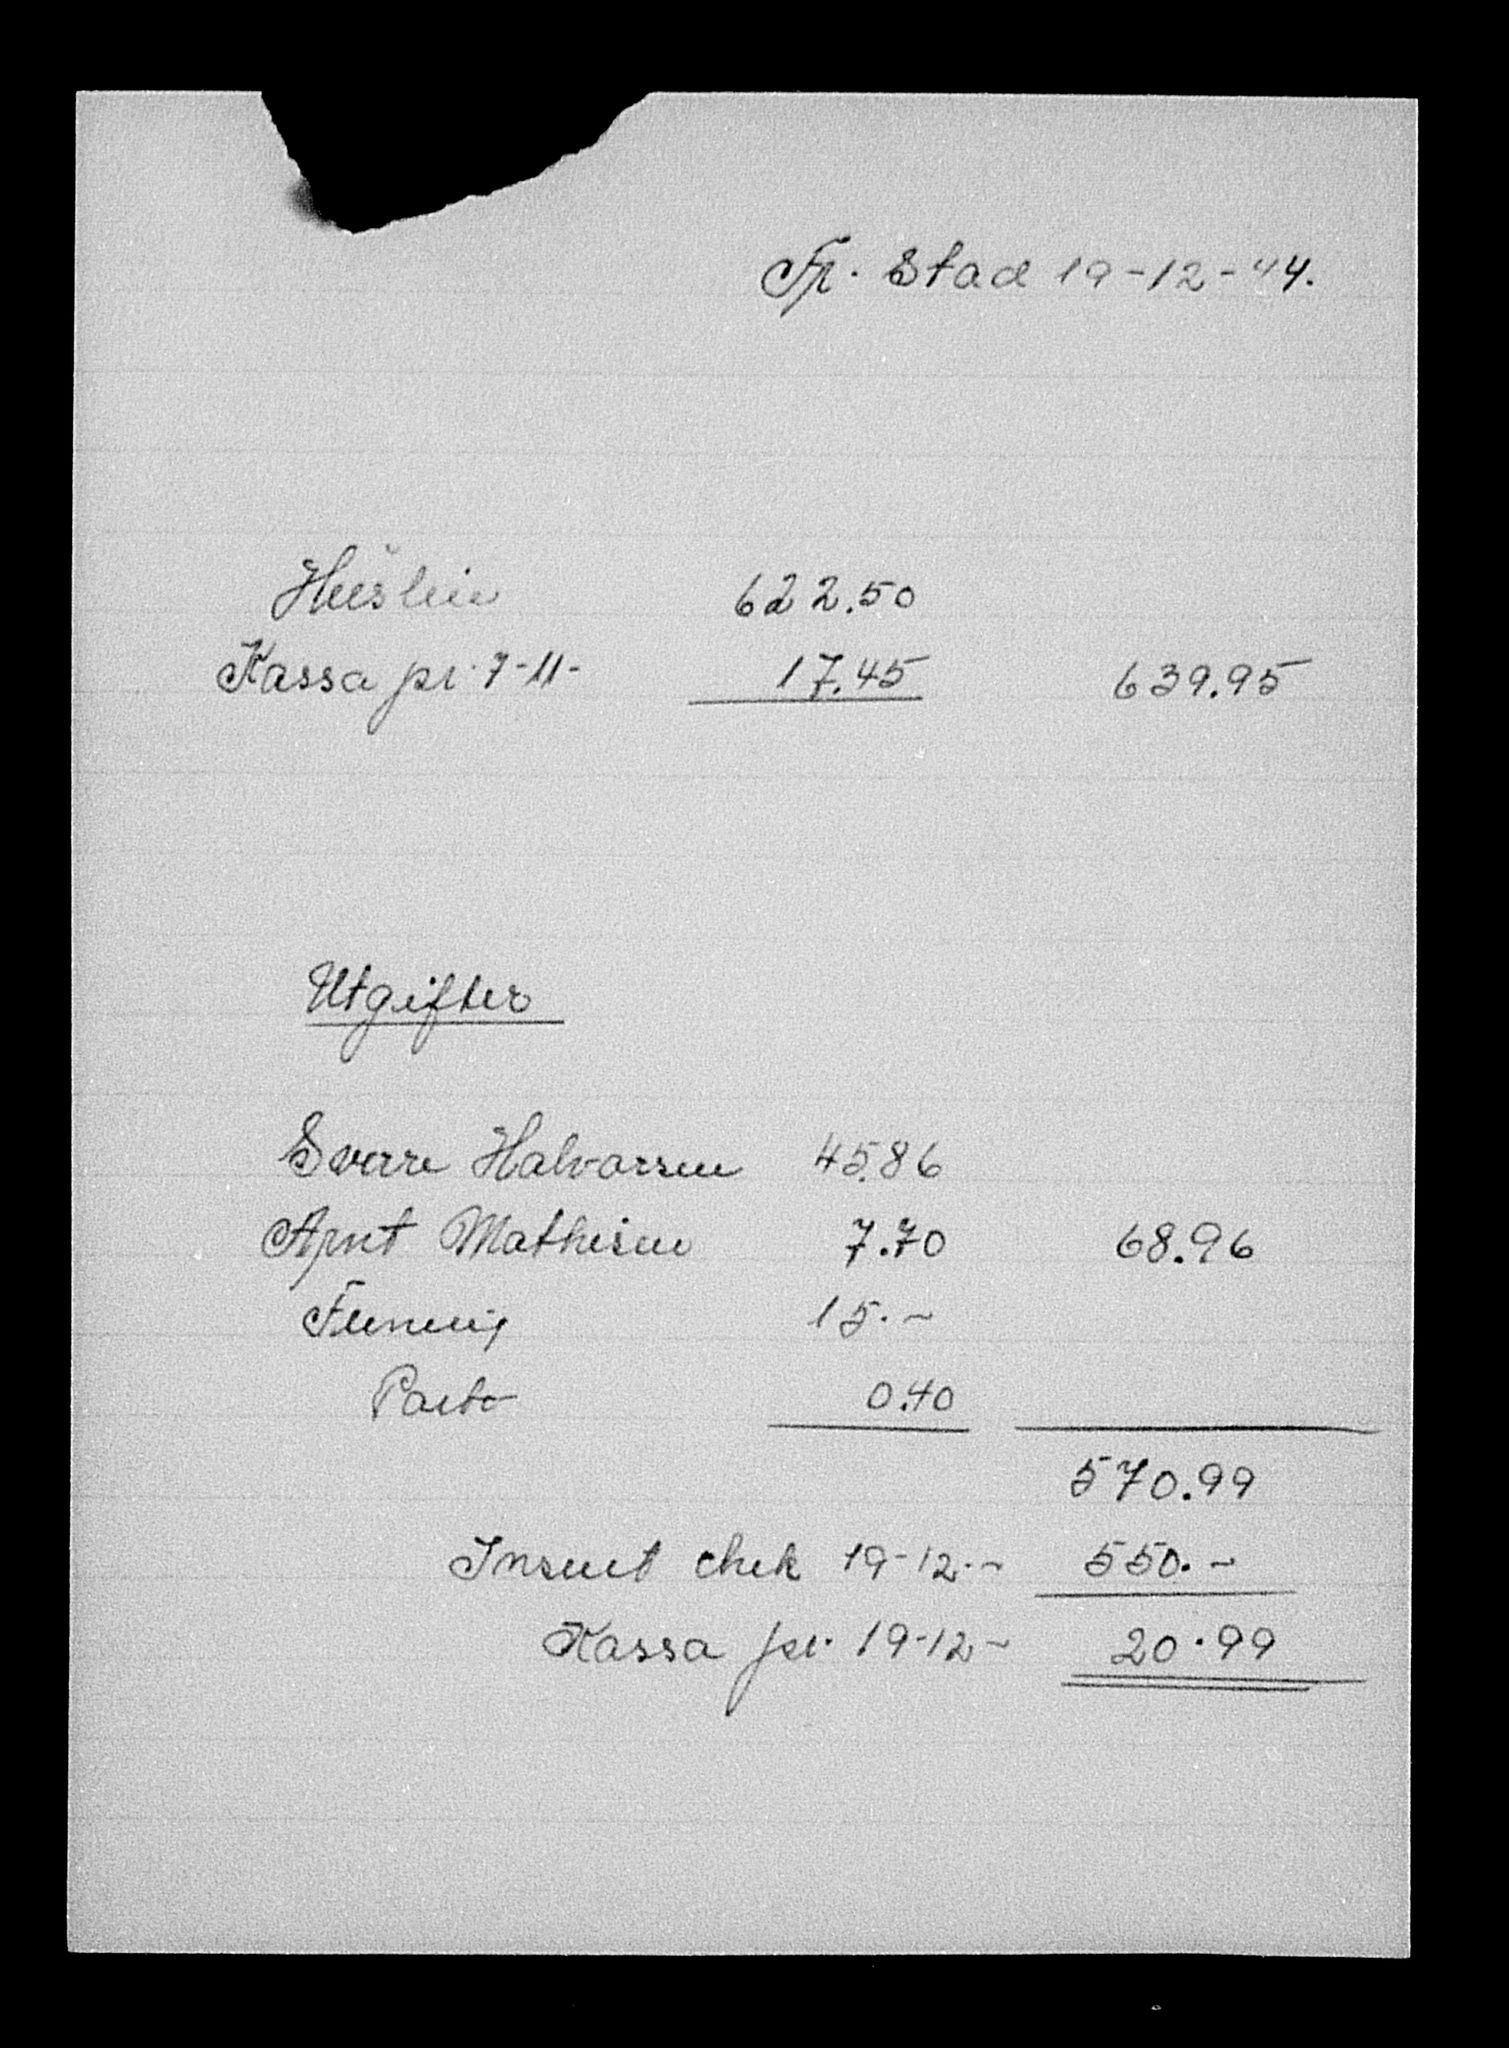 Fr. Stad 19-12-44.
Husleie 622.50
Kassa pr. 7-11- 17.45 639.95
Utgifter
Sverre Halvorsen 45.86
Arnt Mathisen 7.70 68.96
15.-
Porto 0.40
570.99
Insent chek 19-12.- 550.-
Kassa pr. 19-12- 20.99